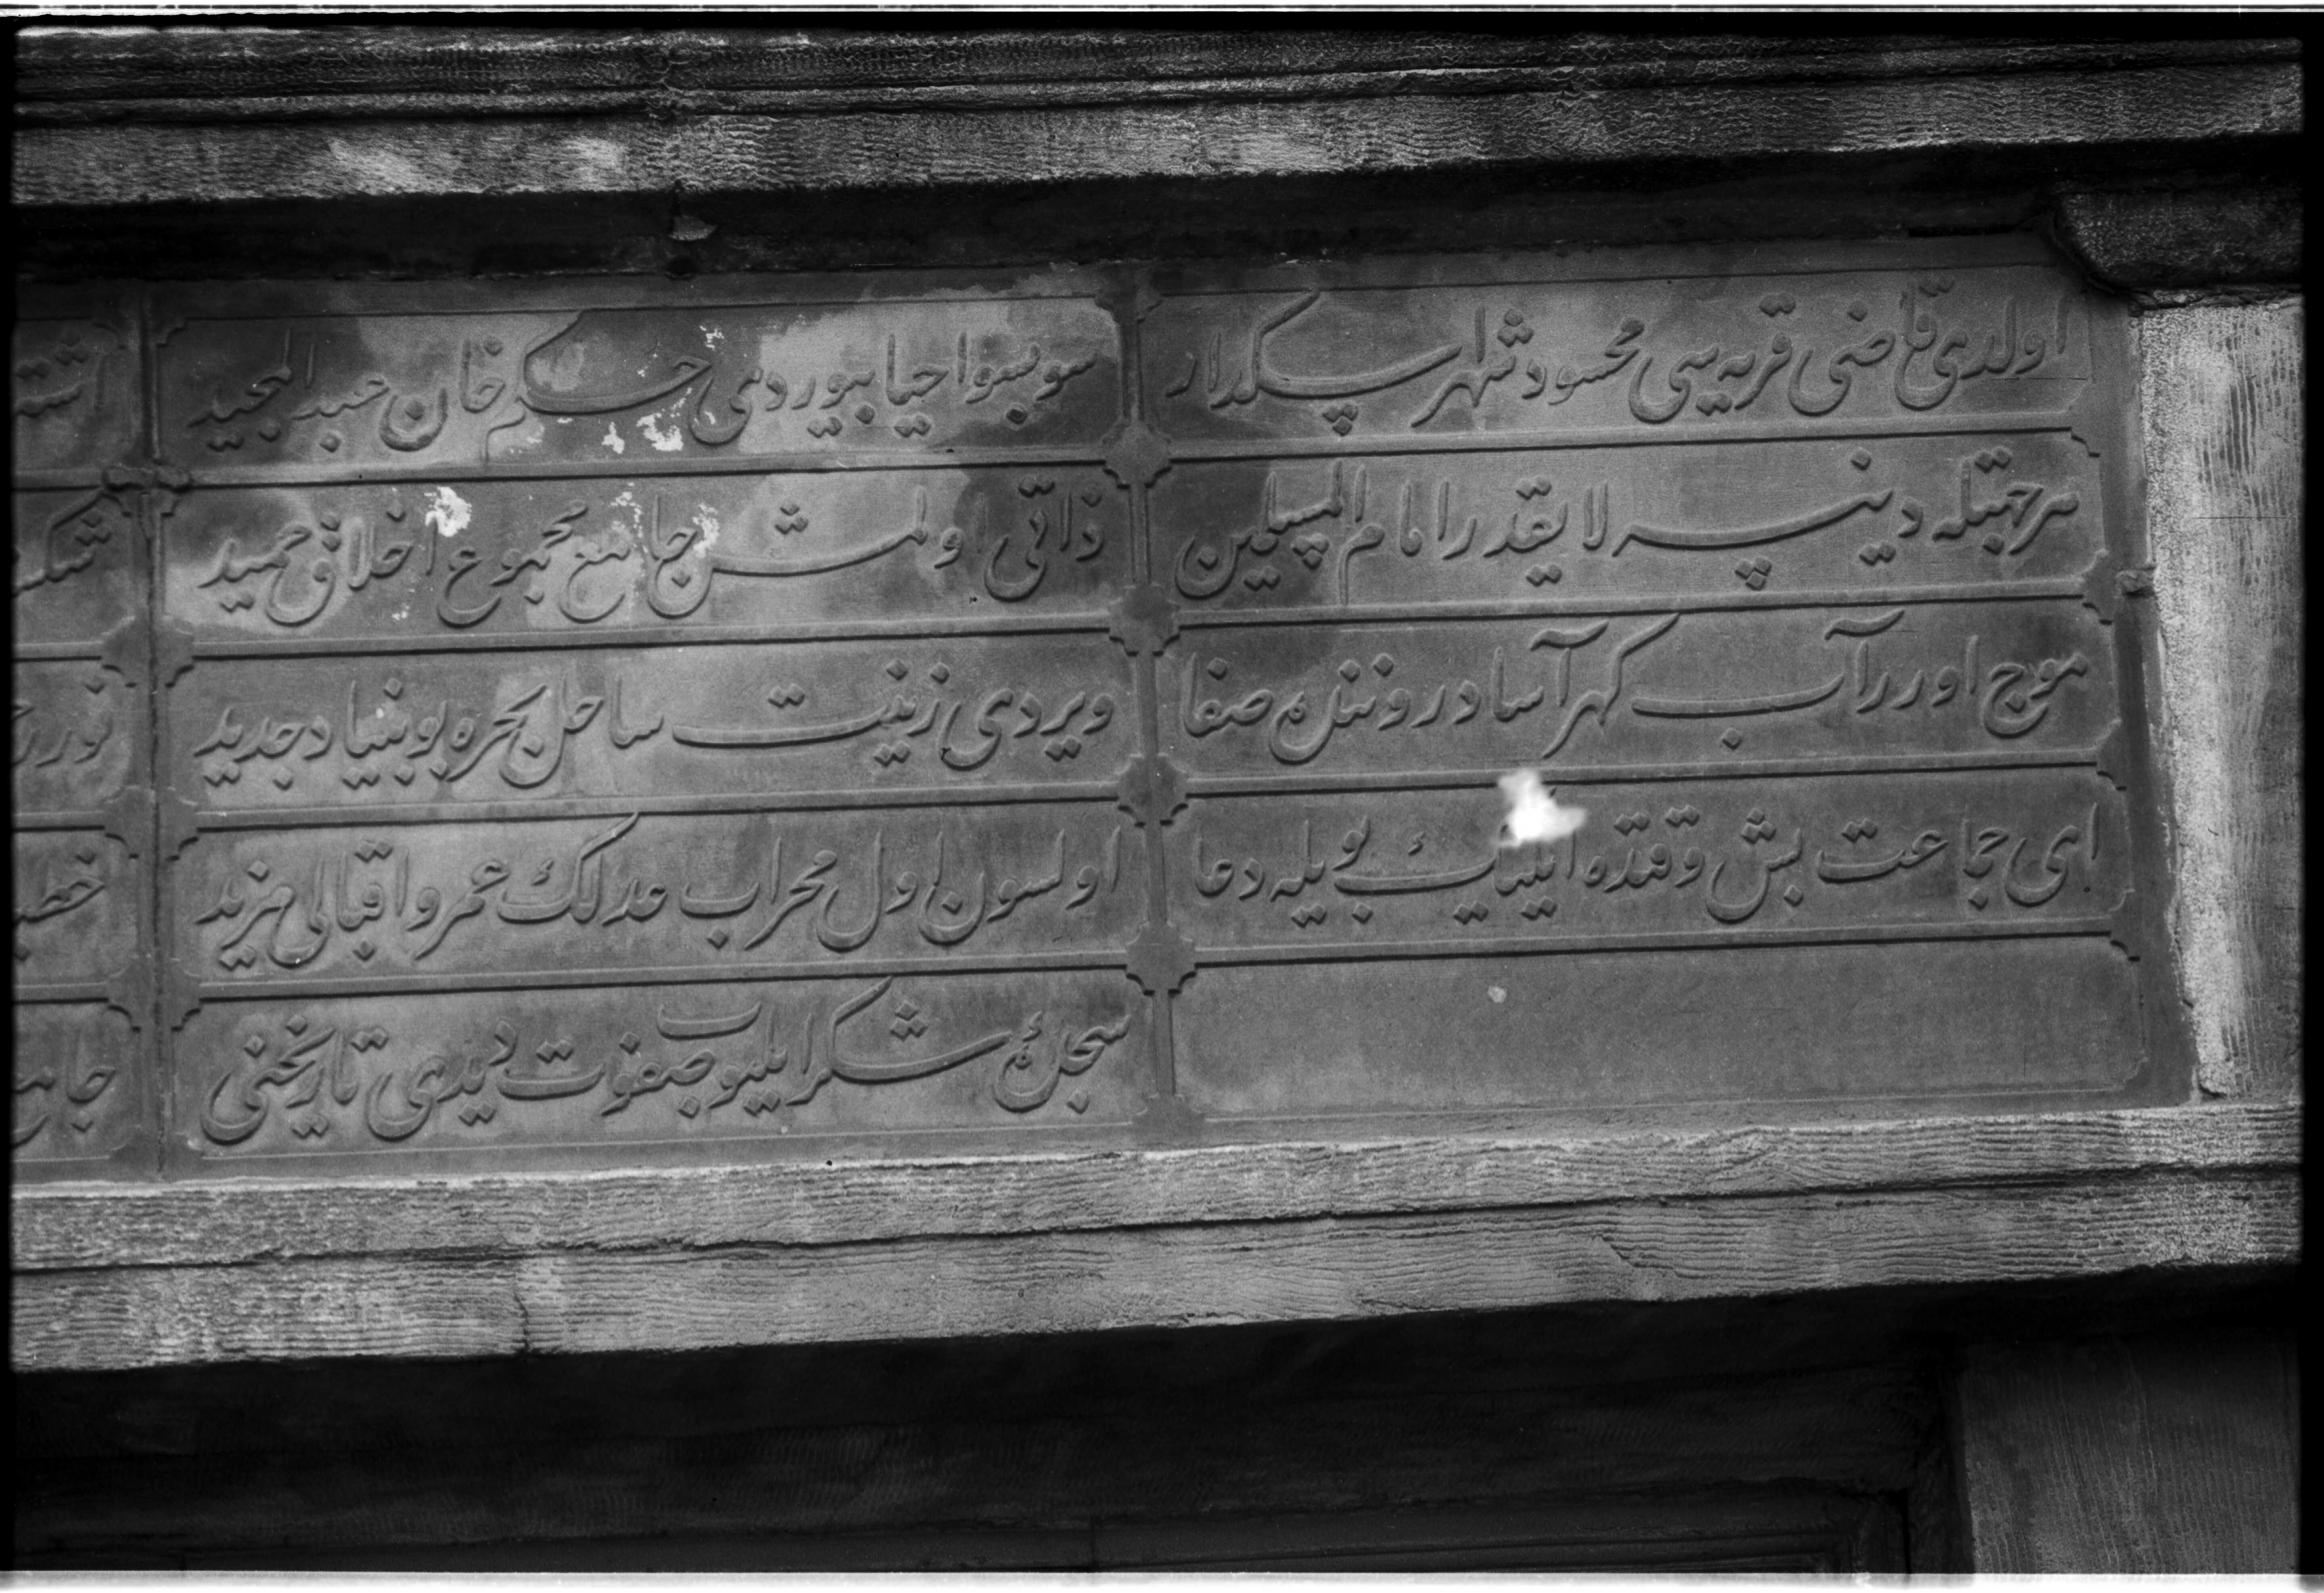 اولدی قاضی قریه سی محسود شهر اسکدار
سو بسو احیا بیوردی حکم خان عبد المجید
مرحمتله دینه لایقدر امام المسلمین
ذاتی اولمش جامع مجموع اخلاق حمید
موج اورر آب کهرآسا دروننده صفا
ویردی زینت ساحل بحره بو بنیاد جدید
ای جماعت بش وقتده ایلیك بویله دعا
اولسون اول محراب عدلك عمر و اقبالی مزید
شکر ایلیوب صفوت دیدی تاریخنی